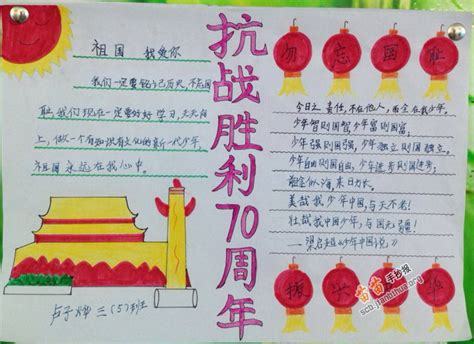 祖国 我爱你
我们一定要铭记历史,不忘国
耻,我们现在一定要好好学习,天天向
上,做一个有知识有文化的新一代少年,
祖国永远在我心中。
抗战胜利70周年
勿忘国耻
今日之责任,不在他人,而全在我少年。
少年智则国智,少年富则国富;
少年强则国强、少年独立则国独立、
少年自由则国自由,少年进步则国进步;
美哉我少年中国,与天不老!
壮哉我中国少年,与国无疆!
——梁启超《少年中国说》
振兴
三(5)班
苗苗手抄报
scb.jianbihua.org